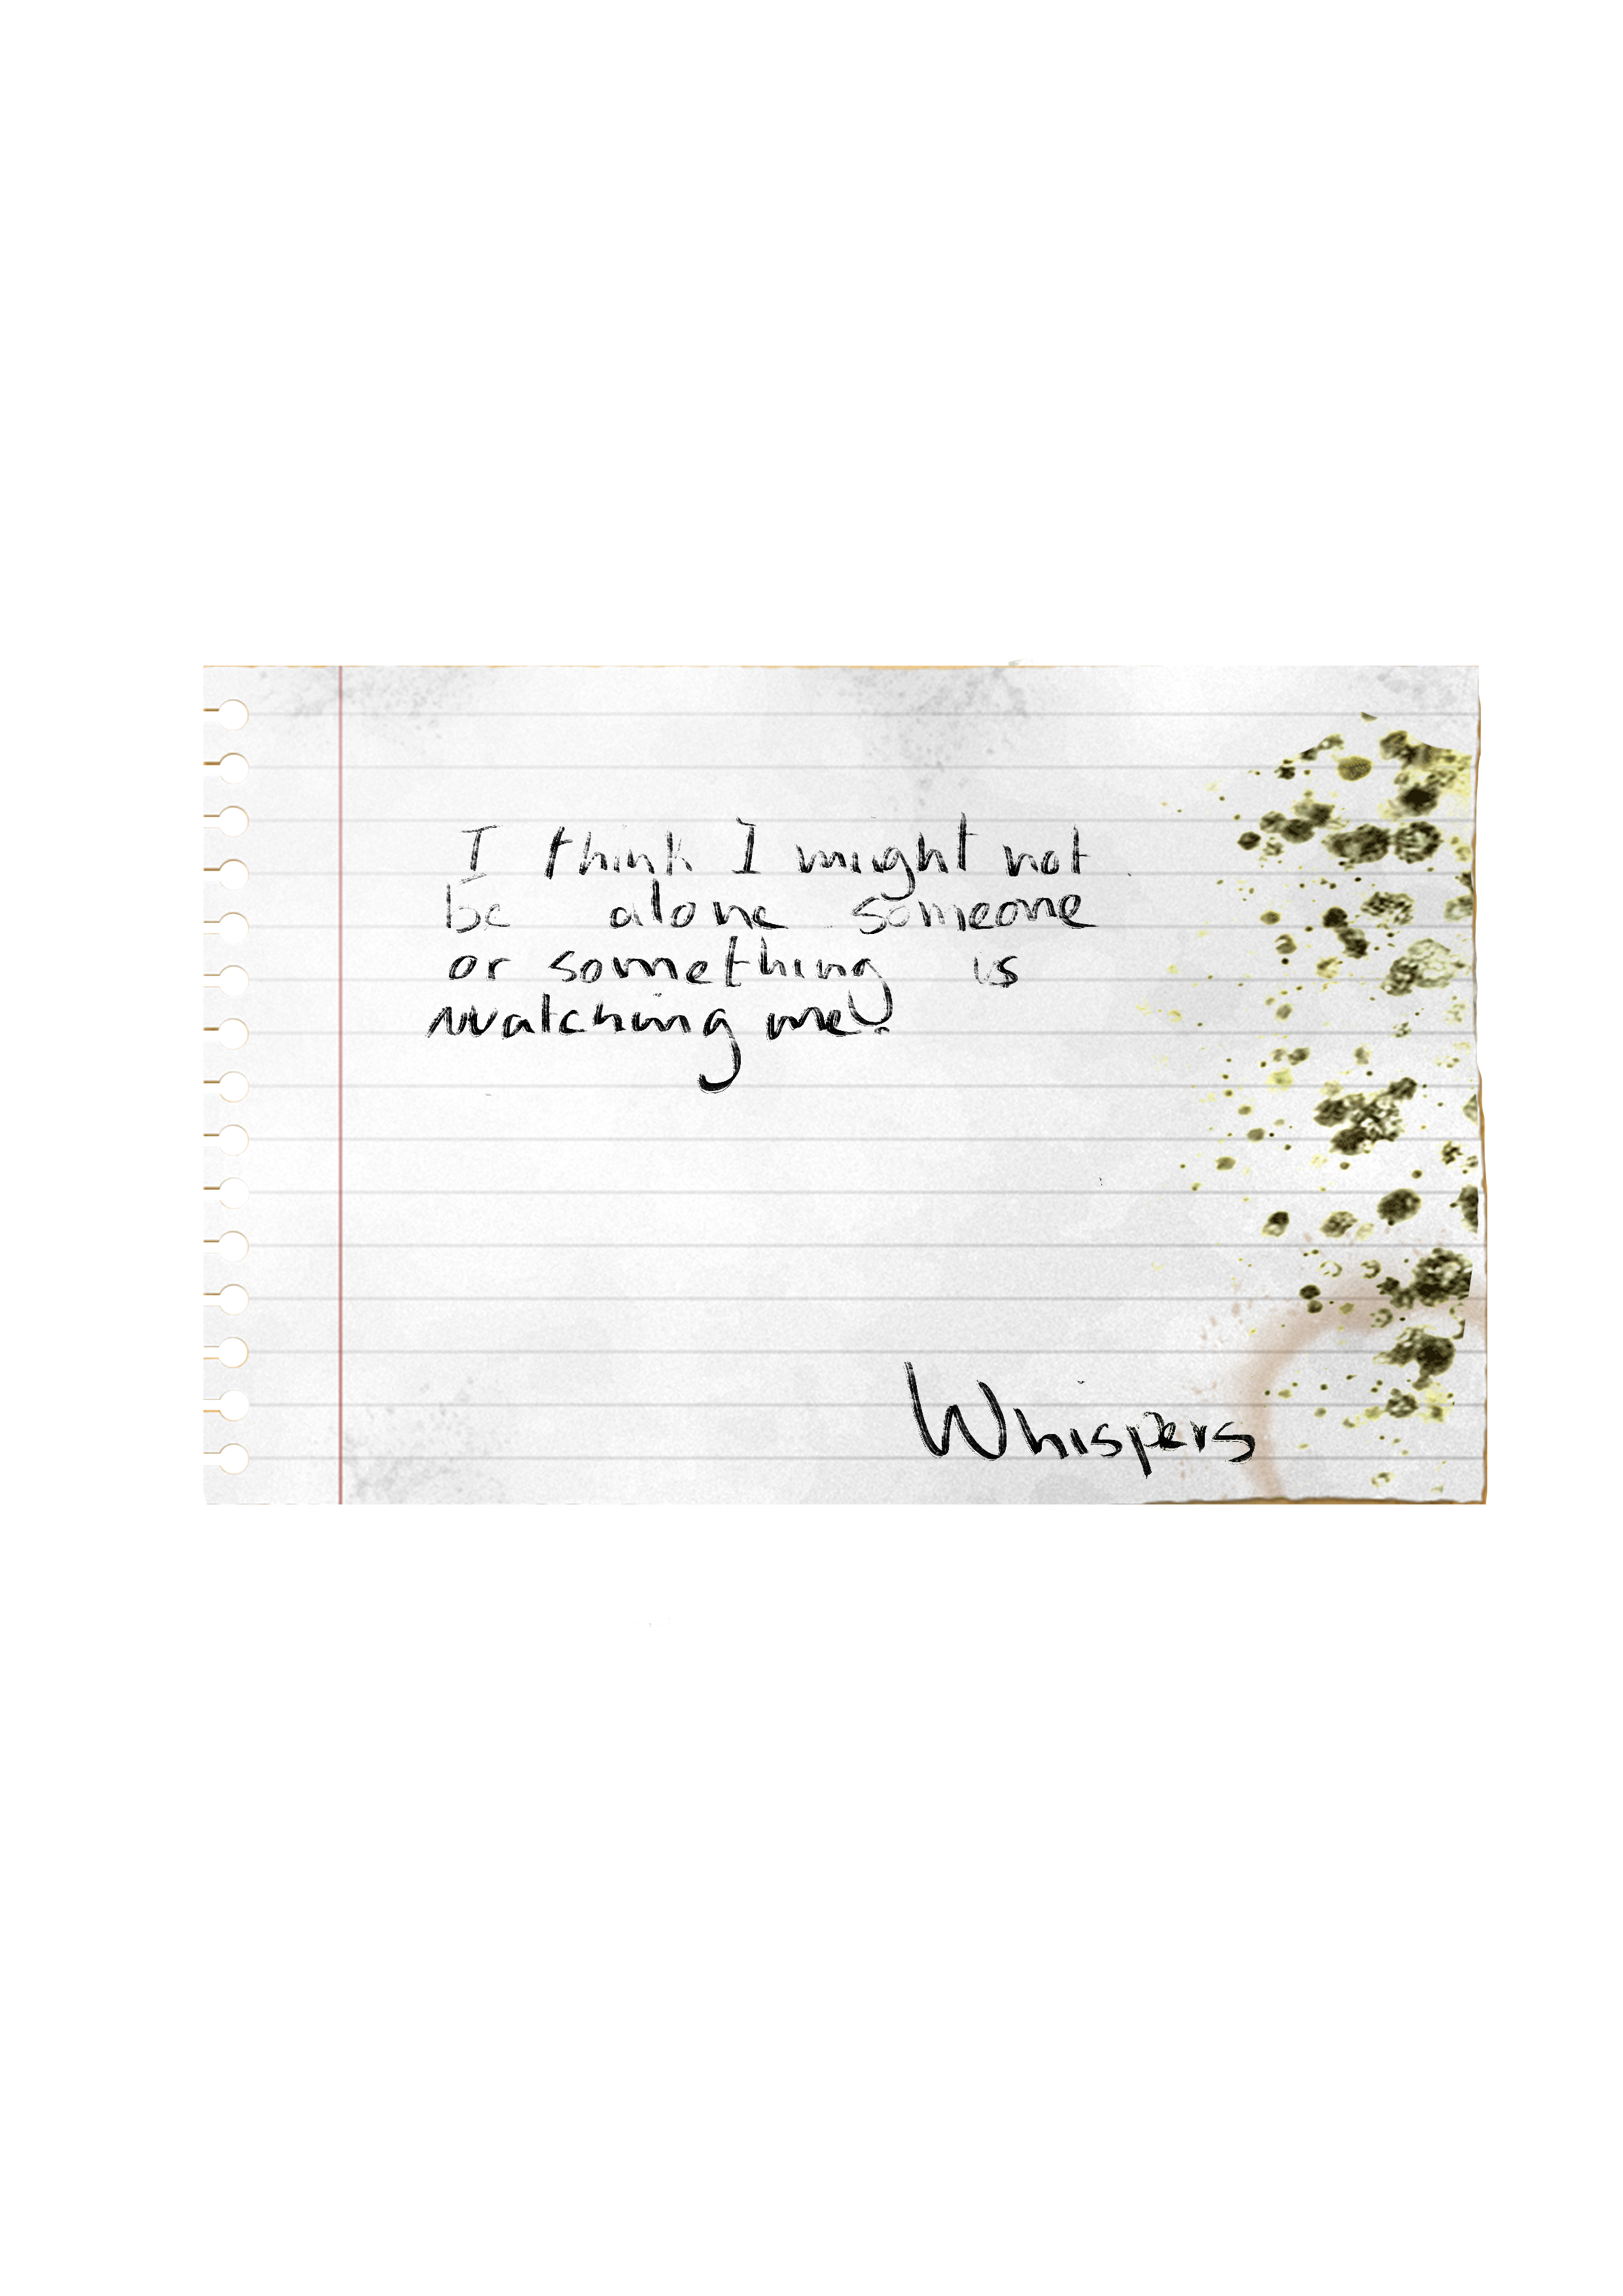 I think I might not
be alone someone
or something is
watching me!
Whispers